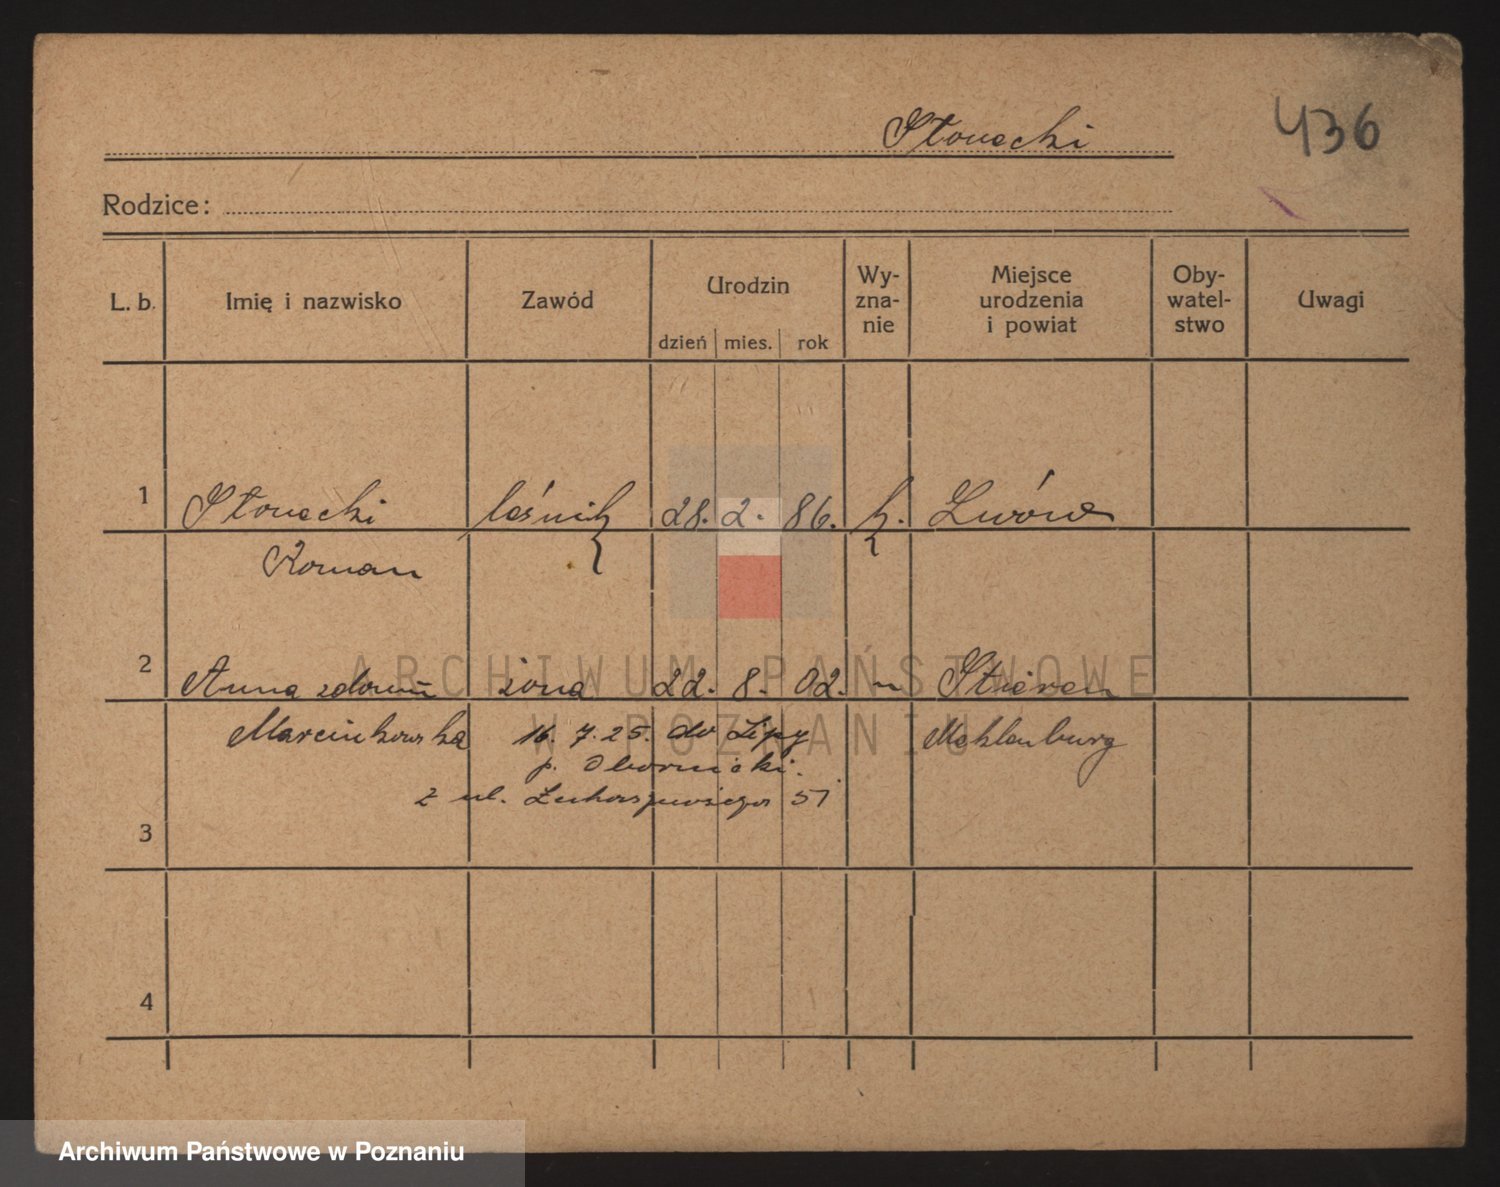 Słowacki
436
Rodzice:
L. b. Imię i nazwisko Zawód Urodzin Wy-zna-nie Miejsce urodzenia i powiat Oby-watel-stwo Uwagi
dzień mies. rok
1 Słowacki leśnik 28. 2. 86. k. Lwów
Roman
2 Anna żona 22. 8. 02. "
Marcinkowska 16. 7. 25. do Lipy Mehlenburg
p. Obornicki.
z ul. 51
3
4
ARCHIWUM PAŃSTWOWE
W POZNANIU
Archiwum Państwowe w Poznaniu